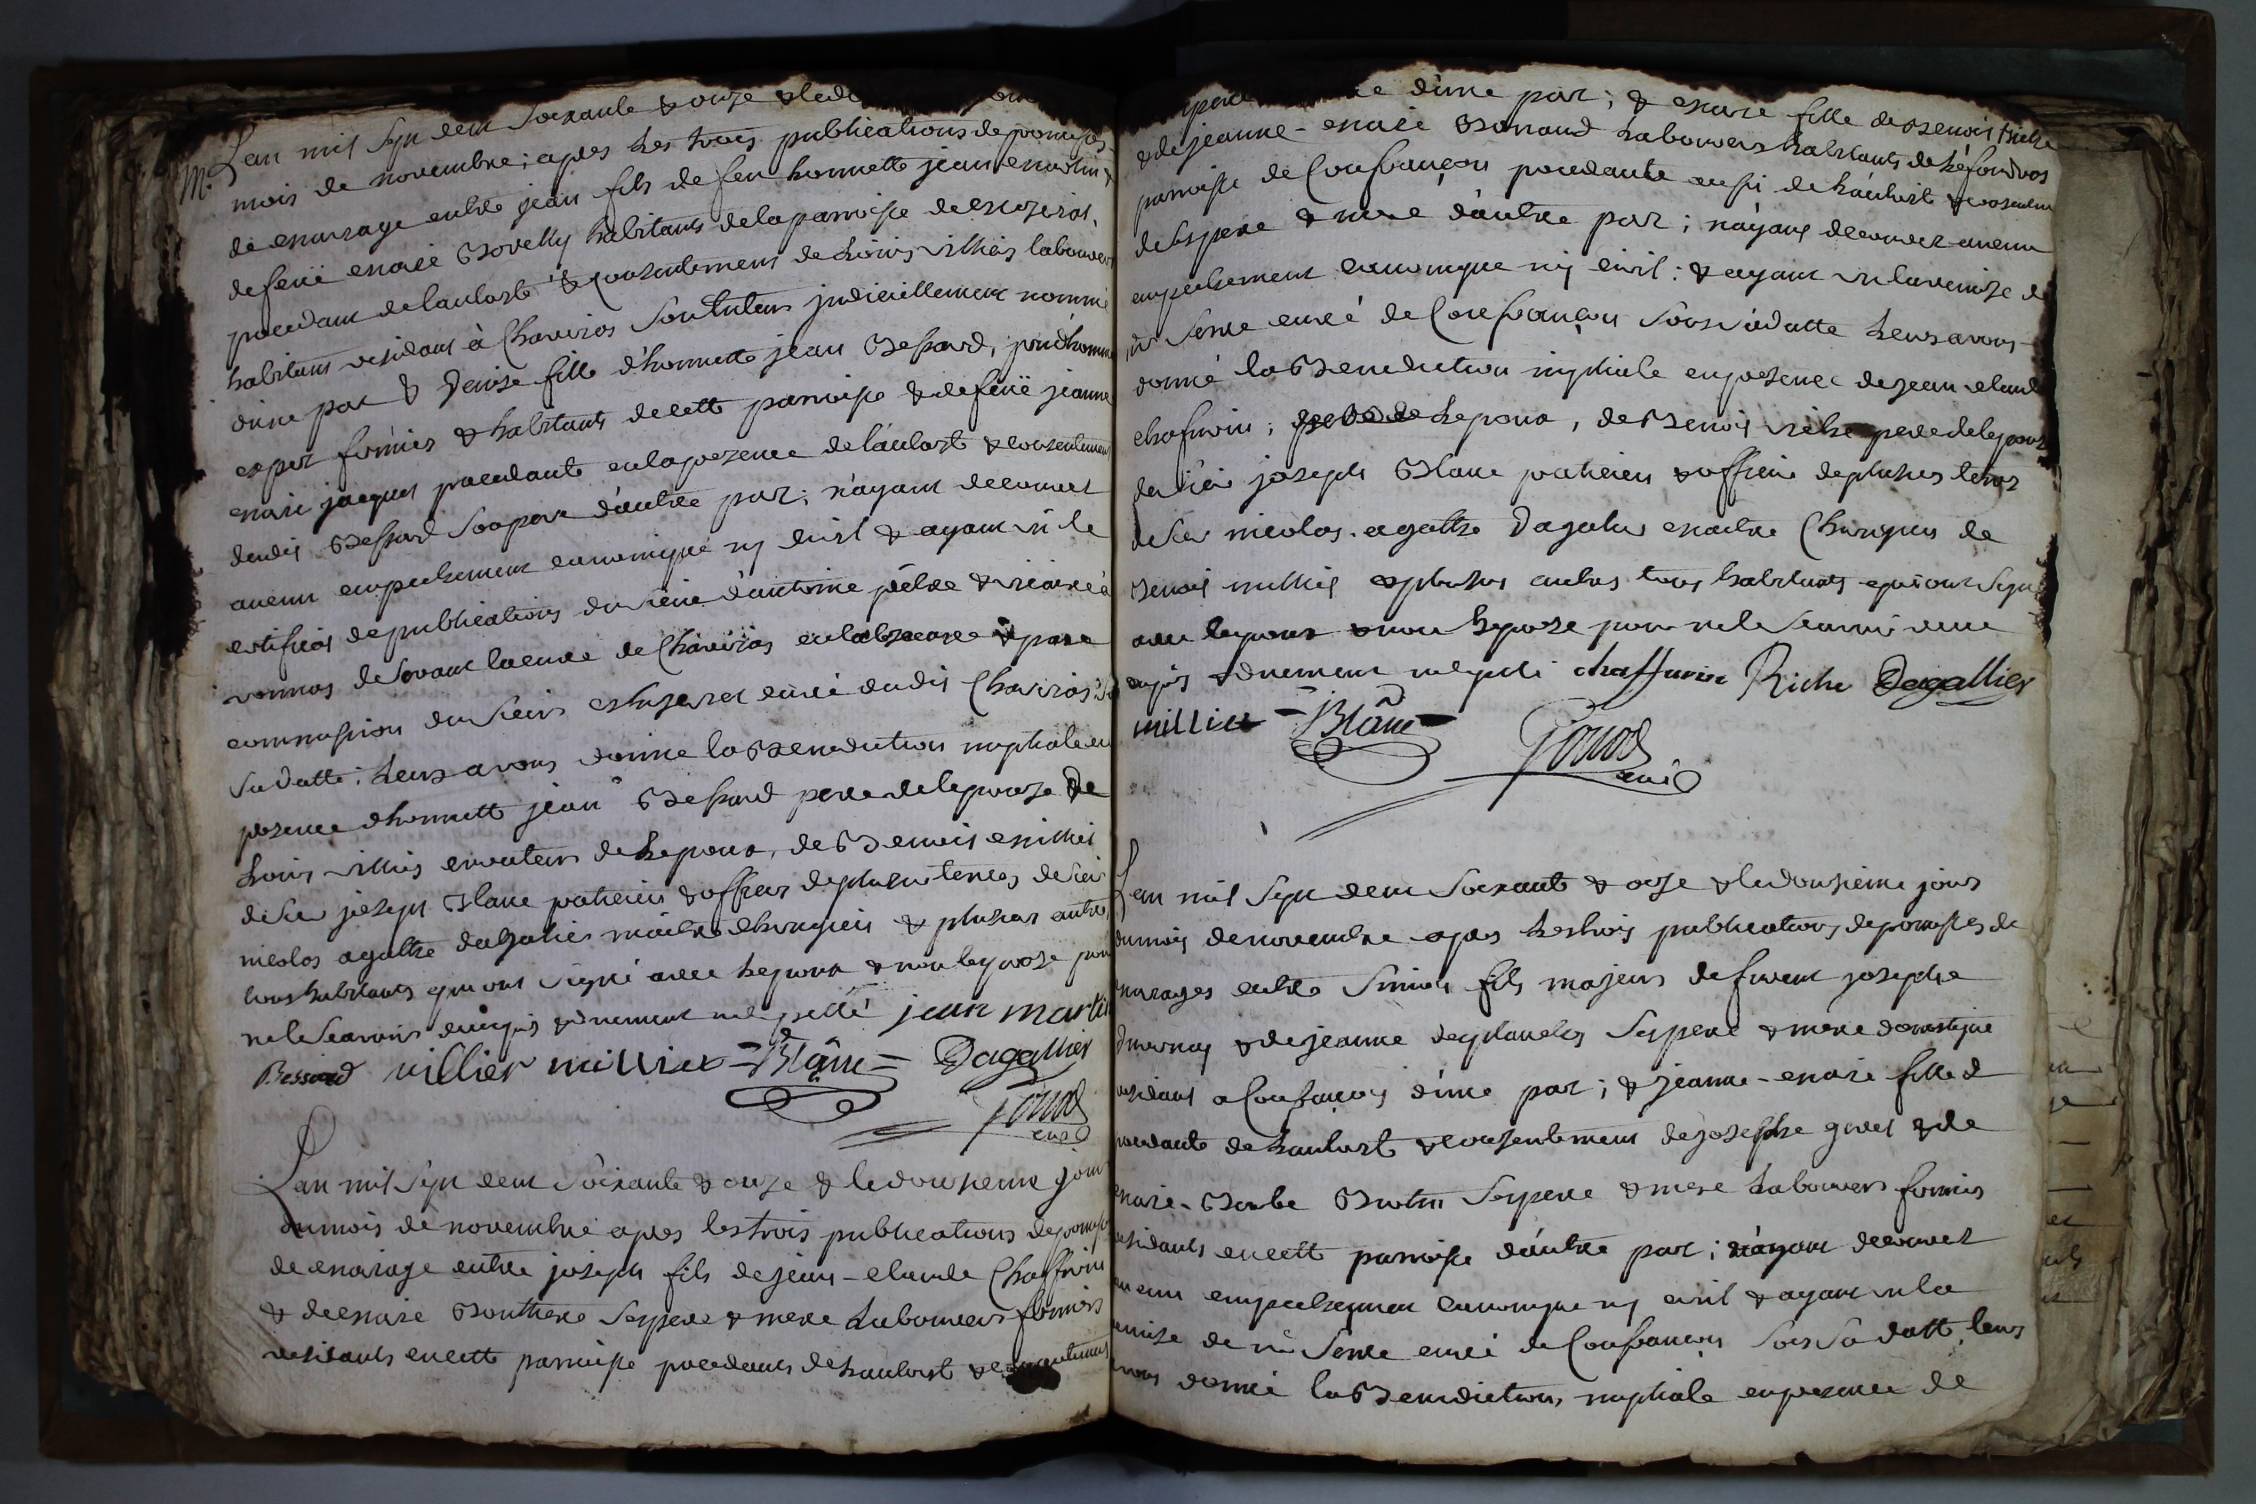 M. Lan mil sept cent soixante & onze & le
mois de novembre; apres les trois publications de promesses
de mariage entre jean fils de feu honnette jean martin &
de feüe marie Bovelly habitants de la paroisse de
procedant de lautorité & consentement de Louis villier laboureur
habitant residant à Chaveiriat son tuteur judiciellement nommé
d'une part & Denise fille d'honnette jean Bessard, prud'homme
expert fermier & habitants de cette paroisse & de feüe jeanne
marie jacquet procedante en la presence de l'autorité & consentement
dudit Bessard son pere d'autre part; n'ayant decouvert
aucun empechement canonique ny civil & ayant vû le
certificat de publications du sieur d'antoine prêtre & vicaire à
vonnas desservant la cure de Chaveirias en labsence & par
commission du sieur curé dudit Chaveirias
sa datte: leurs avons donné la Benediction nuptiale en
presence d'honnette jean Bessard pere de lepouze de
Louis villier curateur de lepoux, de Benoit millet
de sieur joseph Blanc praticien & officier de plusieurs terres de sieur
nicolas agathe dagalier maitre chirurgien & plusieurs autres
tous habitants qui ont signé avec lepoux & non lepouze pour
ne le scavoir enquis & dument interpellé jean martin
Bessard villier millier = Blânc = Dagallier
Gonod
curé
Lan mil sept cent soixante & onze & le douzieme jour
du mois de novembre apres les trois publications de promesses
de mariage entre joseph fils de jean-claude Chaffurin
& de marie Bouthere ses pere & mere laboureurs fermiers
residants en cette paroisse procedant de lautorité & consentement
d'une part; & marie fille de Benoit riche
& de jeanne-marie Bonnaud laboureurs habitants de
paroisse de Confrançon procedante aussi de l'autorité & consentement
de ses pere & mere d'autre part; n'ayant decouvert aucun
empechement canonique ny civil: & ayant vû la remise de
mr Serve curé de Confrançon sous sa datte leurs avons
donné la Benediction nuptiale en presence de jean claude
chafurin; pere de lepoux, de Benoit riche pere de lepouze
de sieur joseph Blanc praticien & officier de plusieurs terres
de sieur nicolas agathe Dagalier maitre Chirurgien de
Benoit millier & plusieurs autres tous habitants qui ont signé
avec lepoux & non lepouze pour ne le scavoir
enquis & dument interpellé chaffurin Riche Dagallier
millier = Blânc =
Gonod
curé
Lan mil sept cent soixante & onze & le douzieme jour
du mois de novembre apres les trois publications de promesses de
mariages entre Simon fils majeur de furent josephe
& de jeanne desplanches ses pere & mere domestique
residant a Confrançon d'une part; & jeanne-marie fille &
procedante de lautorité & consentement de josephe & de
marie-Barbe ses pere & mere laboureurs fermiers
residants en cette paroisse d'autre part; n'ayant decouvert
aucun empechement canonique ny civil & ayant vû la
remise de mr Serve curé de Confrançon sous sa datte, leurs
avons donné la Benediction nuptiale en presence de